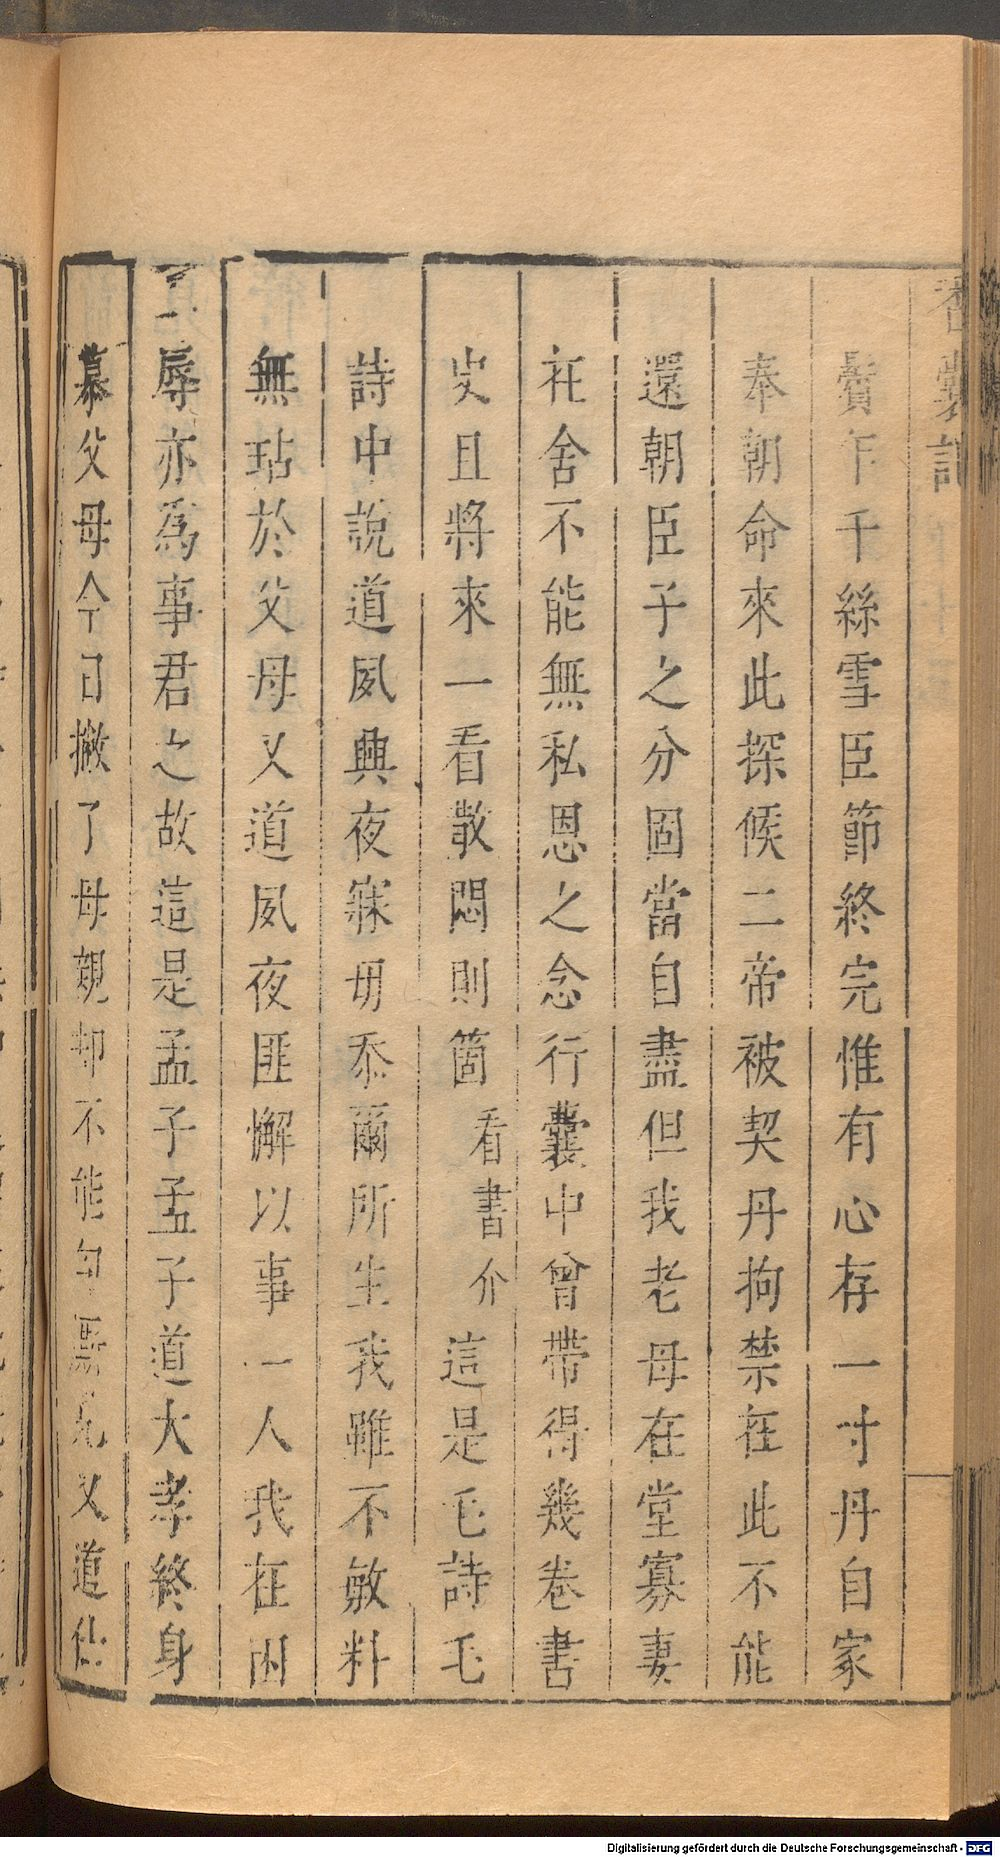 香囊記
鬢乍千絲雪臣節終完惟有心存一寸丹自家
奉朝命來此探候二帝被契丹拘禁在此不能
還朝臣子之分固當自盡但我老母在堂寡妻
在舍不能無私恩之念行囊中曾帶得幾卷書
史且將來一看散悶則箇看書介這是毛詩毛
詩中說道夙興夜寐毋忝爾所生我雖不敏料
無玷於父母又道夙夜匪懈以事一人我在困
辱亦爲事君之故這是孟子孟子道大孝終身
慕父母今日撇了母親却不能勾見又道仕
Digitalisierung gefördert durch die Deutsche Forschungsgemeinschaft - DFG